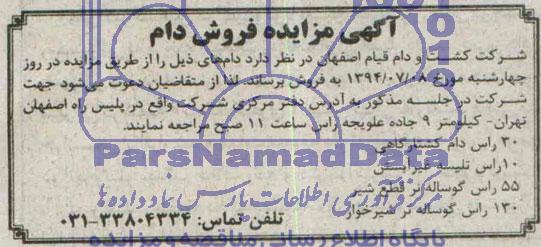 آگهی مزایده فروش دام
شرکت کشت و دام قیام اصفهان در نظر دارد دامهای ذیل را از طریق مزایده در روز
چهارشنبه مورخ ۱۳۹۴/۰۷/۰۸ به فروش برساند. لذا از متقاضیان دعوت می‌شود جهت
شرکت در جلسه مذکور به آدرس دفتر مرکزی شرکت واقع در پلیس راه اصفهان
تهران- کیلومتر ۹ جاده علویجه راس ساعت ۱۱ صبح مراجعه نمایند.
۳۰ راس دام کشتارگاهی
ParsNamadData
۱۰راس تلیسه غیرآبستن
۵۵ راس گوساله نر قطع شیر
مرکز فرآوری اطلاعات پارس نماد داده ها
۱۳۰ راس گوساله نر شیرخوار
تلفن تماس: ۳۳۸۰۴۳۳۴-۰۳۱
پایگاه اطلاع رسانی مناقصه و مزایده